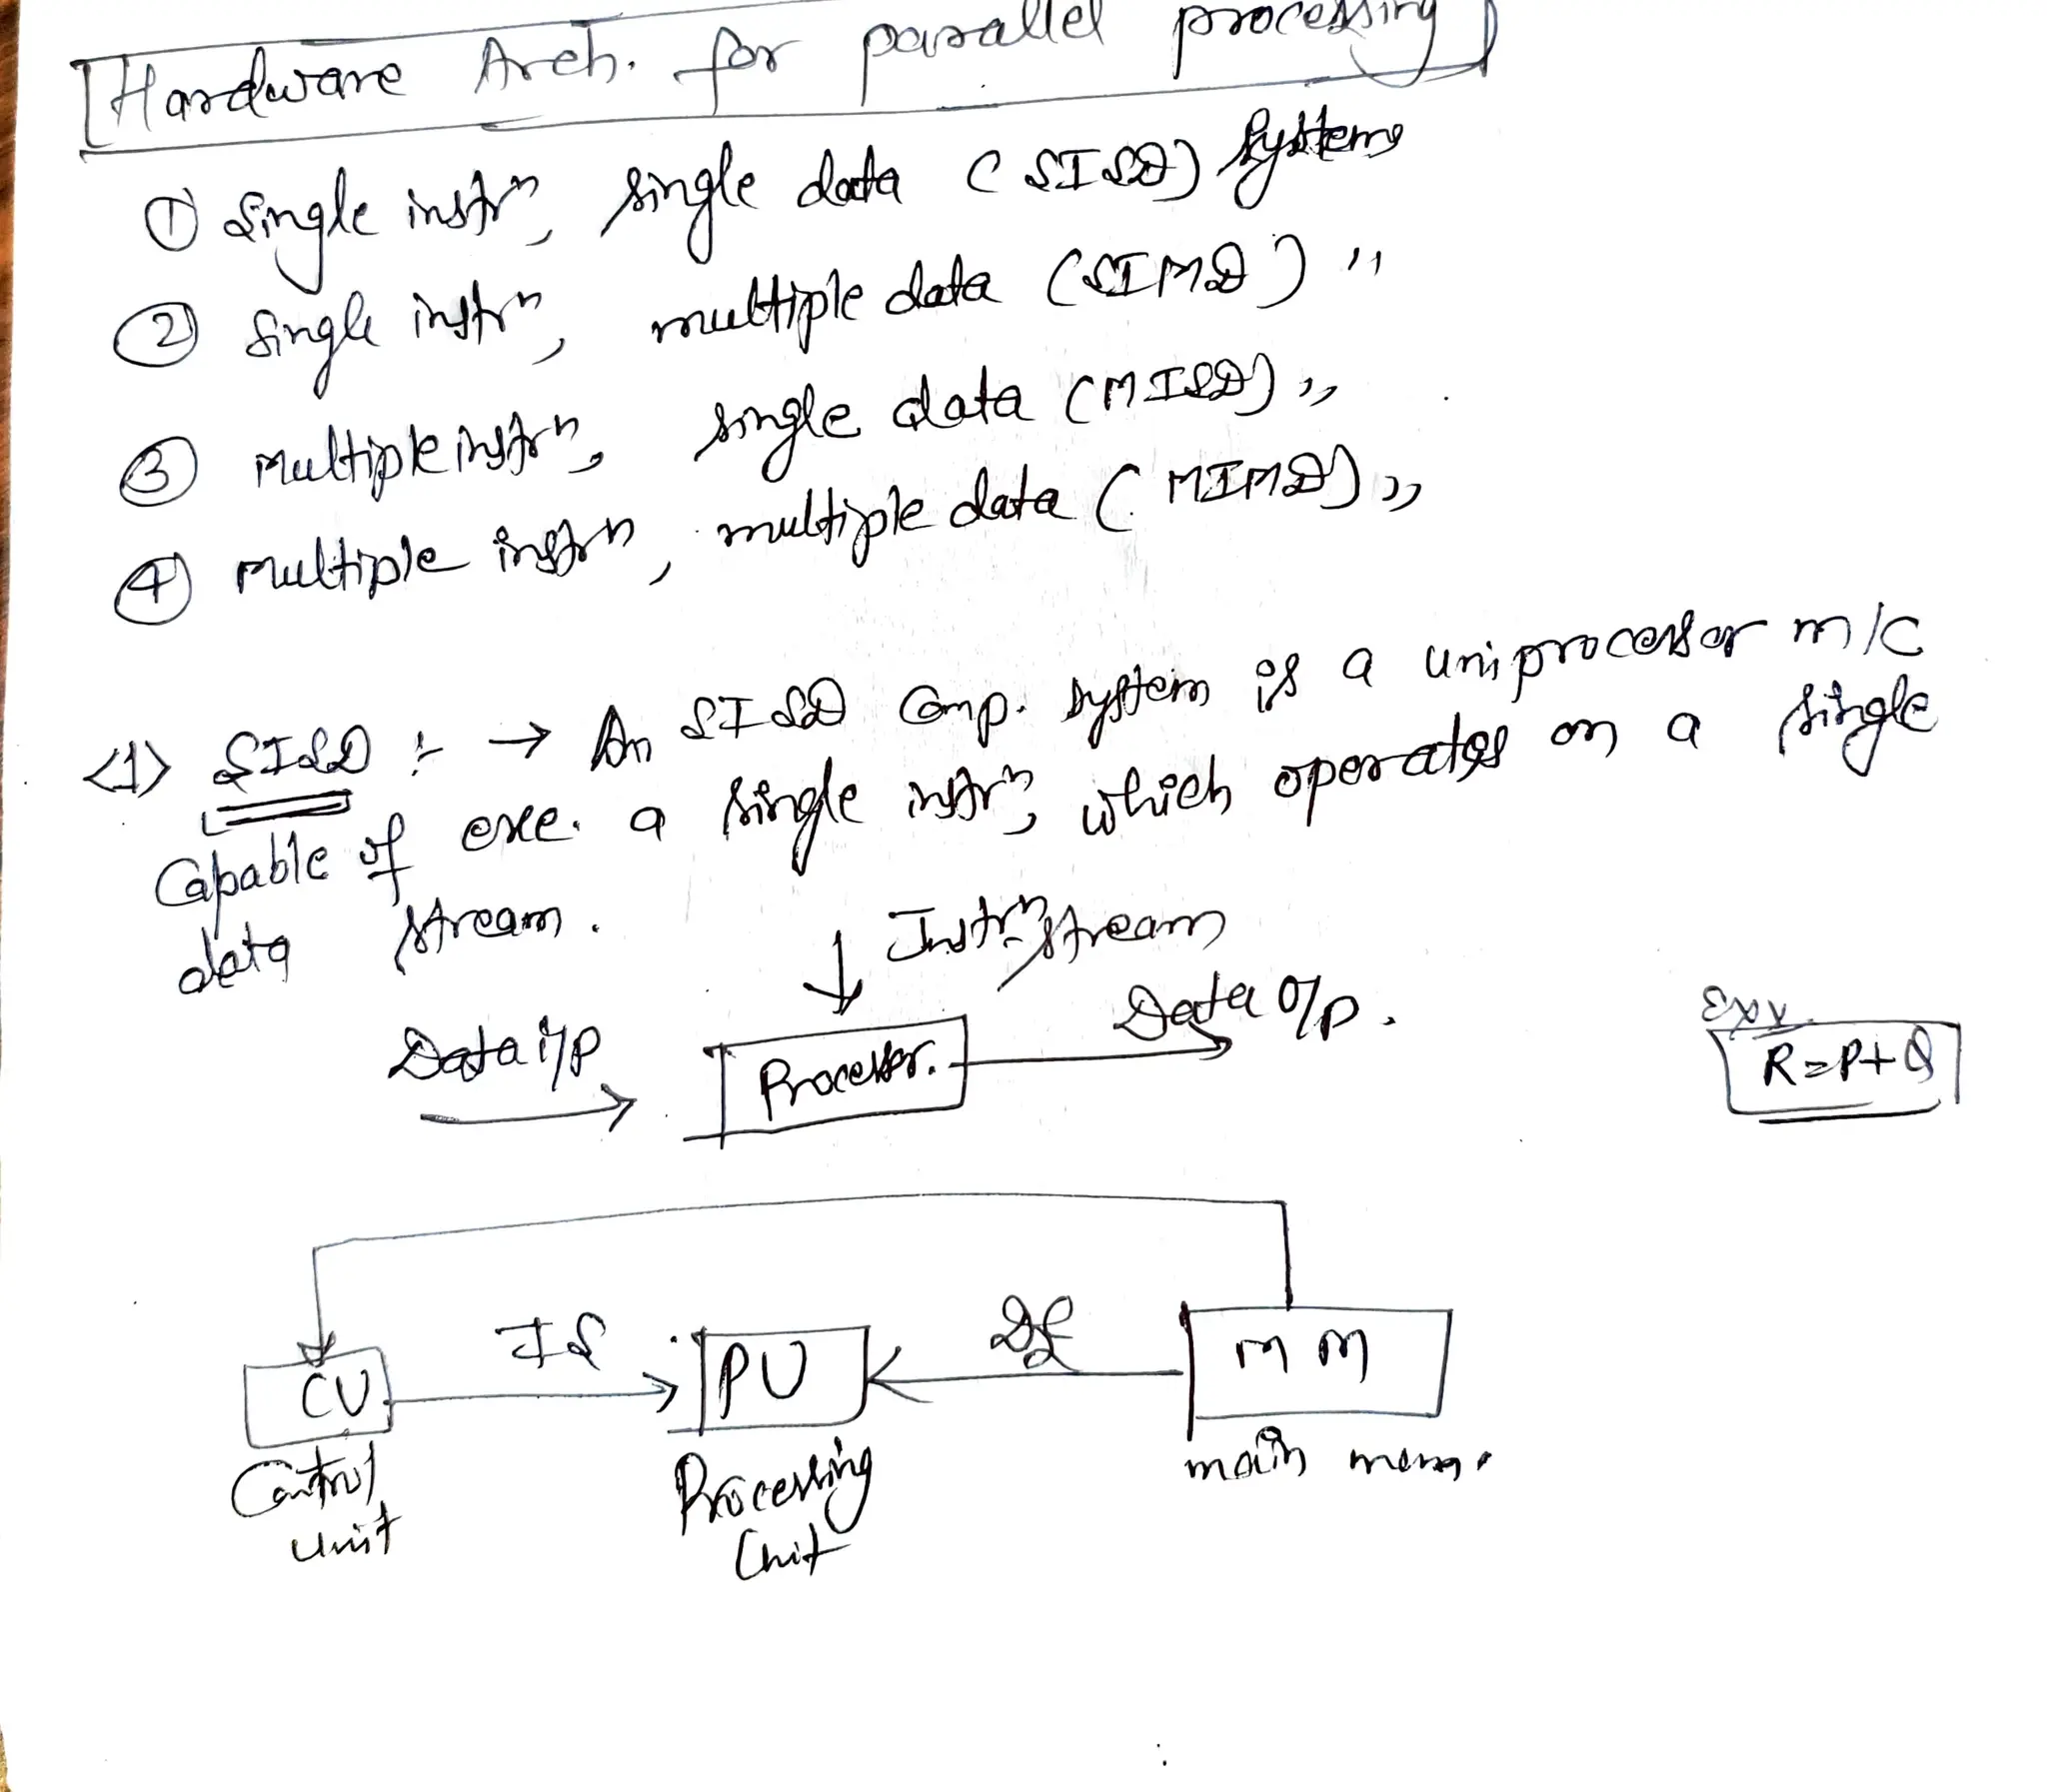 Hardware Arch. for parallel processing
① Single instrⁿ, single data (SISD) systems
② Single instrⁿ, multiple data (SIMD) "
③ Multiple instrⁿ, single data (MISD) "
④ Multiple instrⁿ, multiple data (MIMD) "
<1> SISD :- → An SISD Comp. system is a uniprocessor m/c
Capable of exe. a single instrⁿ, which operates on a single
data stream.
↓ Instrⁿ stream
Data i/p
Data o/p.
Processor.
Ex
R=P+Q
CU
IS
PU
DS
MM
Control
Unit
Processing
Unit
main mem.